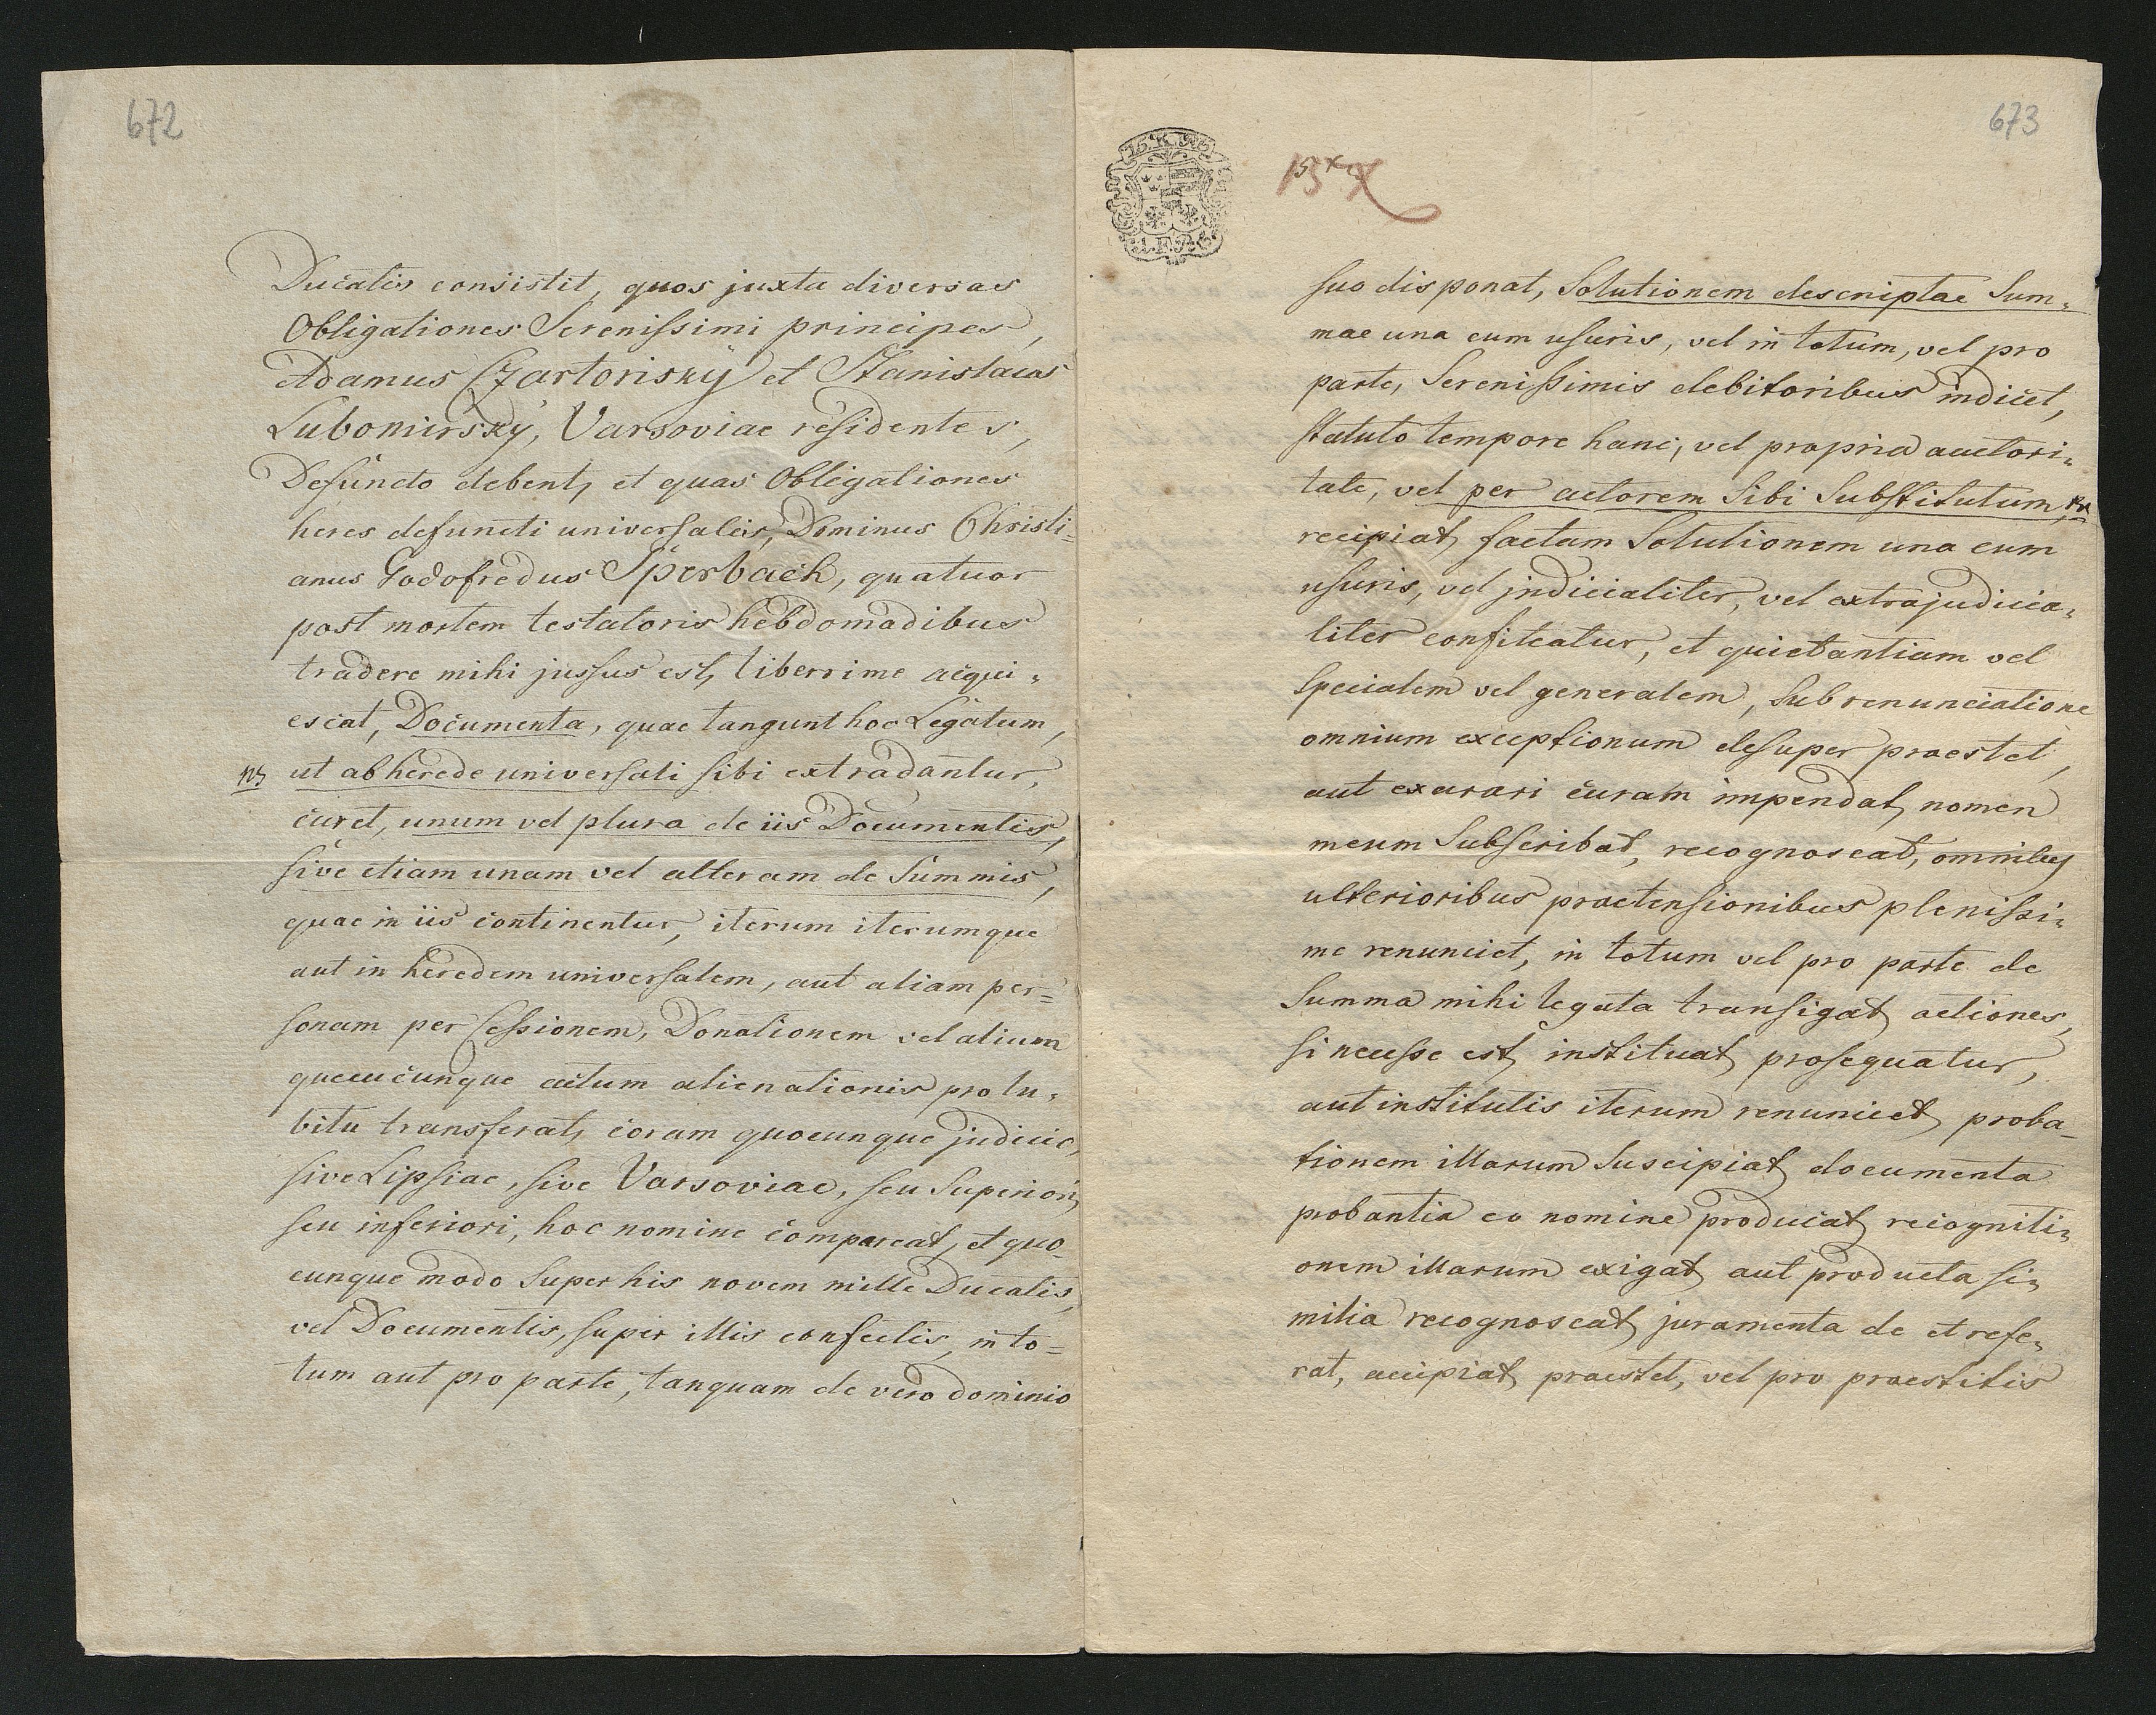 672
Ducatis consistit, quos juxta diversas
Obligationes Serenissimi principes,
Adamus Czartorisky et Stanislaus
Lubomirsky, Varsoviae residentes,
Defuncto debent, et quas Obligationes
heres defuncti universalis, Dominus Christi=
anus Godofredus Sperbach, quatuor
post mortem testatoris hebdomadibus
tradere mihi jussus est, liberrime acqui=
escat, Documenta, quae tangunt hoc Legatum,
ut ab herede universali sibi extradantur,
curet, unum vel plura de iis Documentis,
sive etiam unam vel alteram de Summis,
quae in iis continentur, iterum iterumque
aut in heredem universalem, aut aliam per=
sonam per Cessionem, Donationem vel alium
quemcunque actum alienationis pro lu=
bitu transferat, coram quocunque judicio,
sive Lipsiae, sive Varsoviae, seu Superiori,
seu inferiori, hoc nomine compareat, et quo
cunque modo Super his novem mille Ducatis,
vel Documentis, super illis confectis, in to=
tum aut pro parte, tanquam de vero dominio
673
15. K. 93
I. F. 96
15 x
suo disponat, Solutionem descriptae Sum=
mae una cum usuris, vel in totum, vel pro
parte, Serenissimis debitoribus indicet,
statuto tempore hanc, vel propria auctori=
tate, vel per actorem Sibi Substitutum,
recipiat, factam Solutionem una cum
usuris, vel judicialiter, vel extrajudicia=
liter confiteatur, et quietantiam vel
Specialem vel generalem, Sub renunciatione
omnium exceptionum desuper praestet,
aut exarari curam impendat, nomen
meum Subscribat, recognoscat, omnibus
ulterioribus praetensionibus plenissi=
me renunciet, in totum vel pro parte de
Summa mihi legata transigat, actiones,
si necesse est, instituat, prosequatur,
aut institutis iterum renunciet, proba=
tionem illarum Suscipiat, documenta
probantia eo nomine producat, recogniti=
onem illarum exigat, aut producta si=
milia recognoscat, juramenta de et refe=
rat, accipiat, praestet, vel pro praestitis